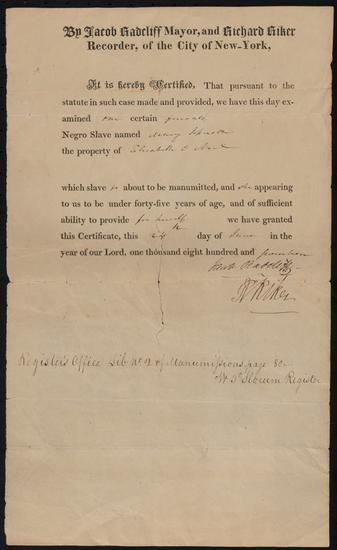 By Jacob Radcliff Mayor, and Richard Riker
Recorder, of the City of New-York,
It is hereby Certified, That pursuant to the
statute in such case made and provided, we have this day ex-
amined one certain female
Negro Slave named Mary
the property of Elizabeth
which slave is about to be manumitted, and she appearing
to us to be under forty-five years of age, and of sufficient
ability to provide for herself we have granted
this Certificate, this day of June in the
year of our Lord, one thousand eight hundred and
Jacob Radcliff
R Riker
Register's Office Lib No 2 of Manumissions page 80 -
Slocum Register